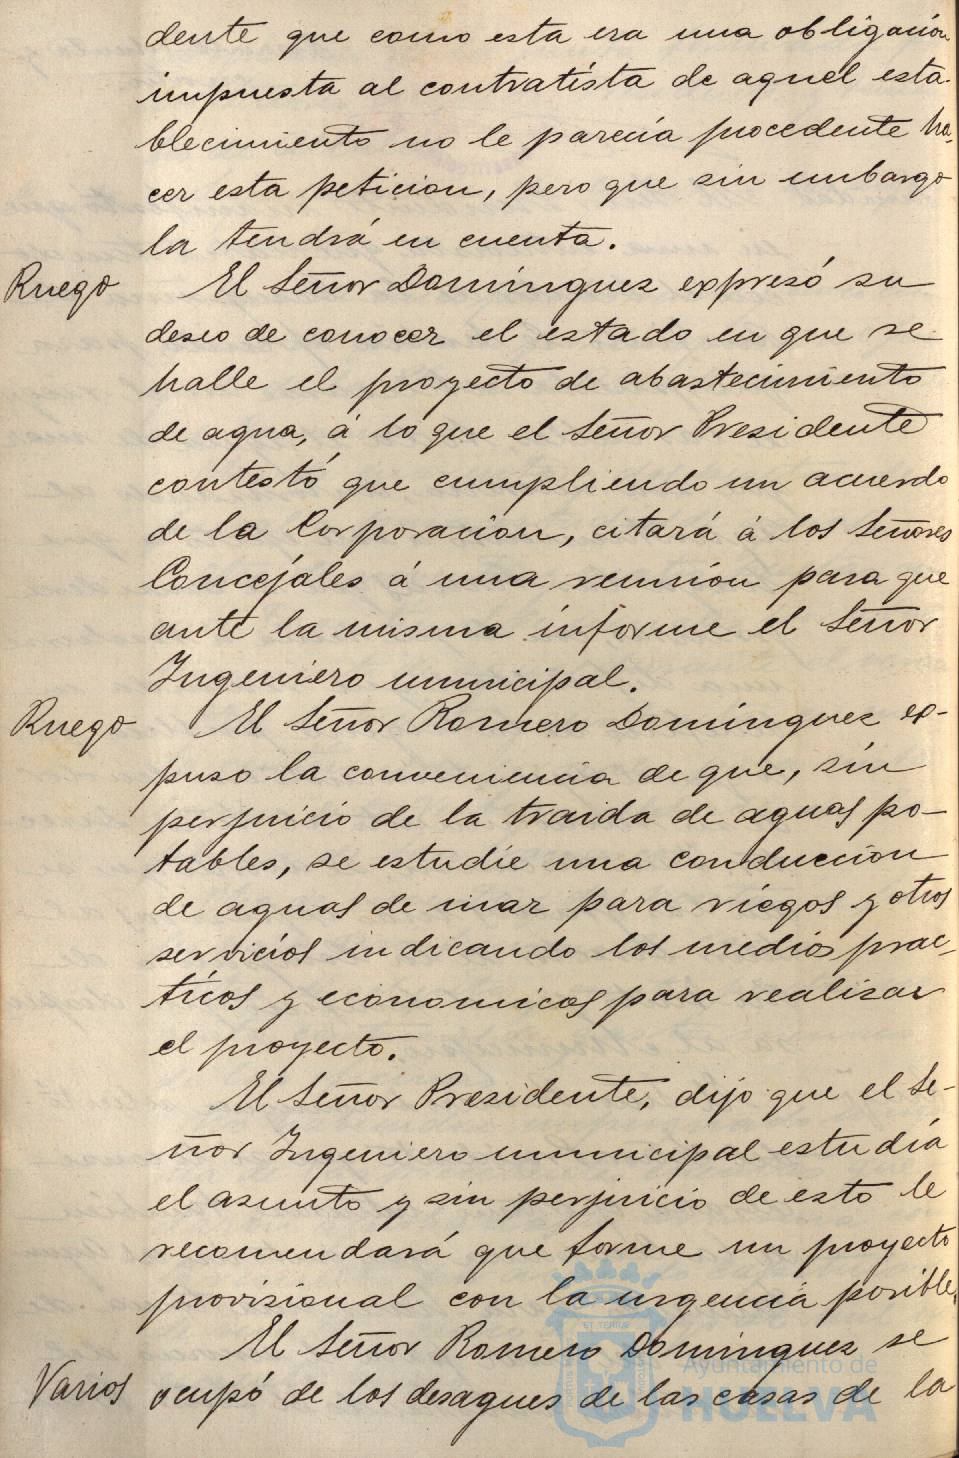 dente que como esta era una obligación
impuesta al contratista de aquel esta-
blecimiento no le parecía procedente ha-
cer esta peticion, pero que sin embargo
la tendrá en cuenta.
Ruego El Señor Domínguez expresó su
deseo de conocer el estado en que se
halle el proyecto de abastecimiento
de agua, á lo que el Señor Presidente
contestó que cumpliendo un acuerdo
de la Corporacion, citará á los Señores
Concejales á una reunión para que
ante la misma informe el Señor
Ingeniero municipal.
Ruego El Señor Romero Domínguez ex-
puso la conveniencia de que, sin
perjuicio de la traida de aguas po-
tables, se estudie una conduccion
de aguas de mar para riegos y otros
servicios indicando los medios prac-
ticos y economicos para realizar
el proyecto.
El Señor Presidente, dijo que el Se-
ñor Ingeniero municipal estudía
el asunto y sin perjuicio de esto le
recomendará que forme un proyecto
provisional con la urgencia posible.
El Señor Romero Domínguez se
Varios ocupó de los desagues de las casas de la
Ayuntamiento de
HUELVA